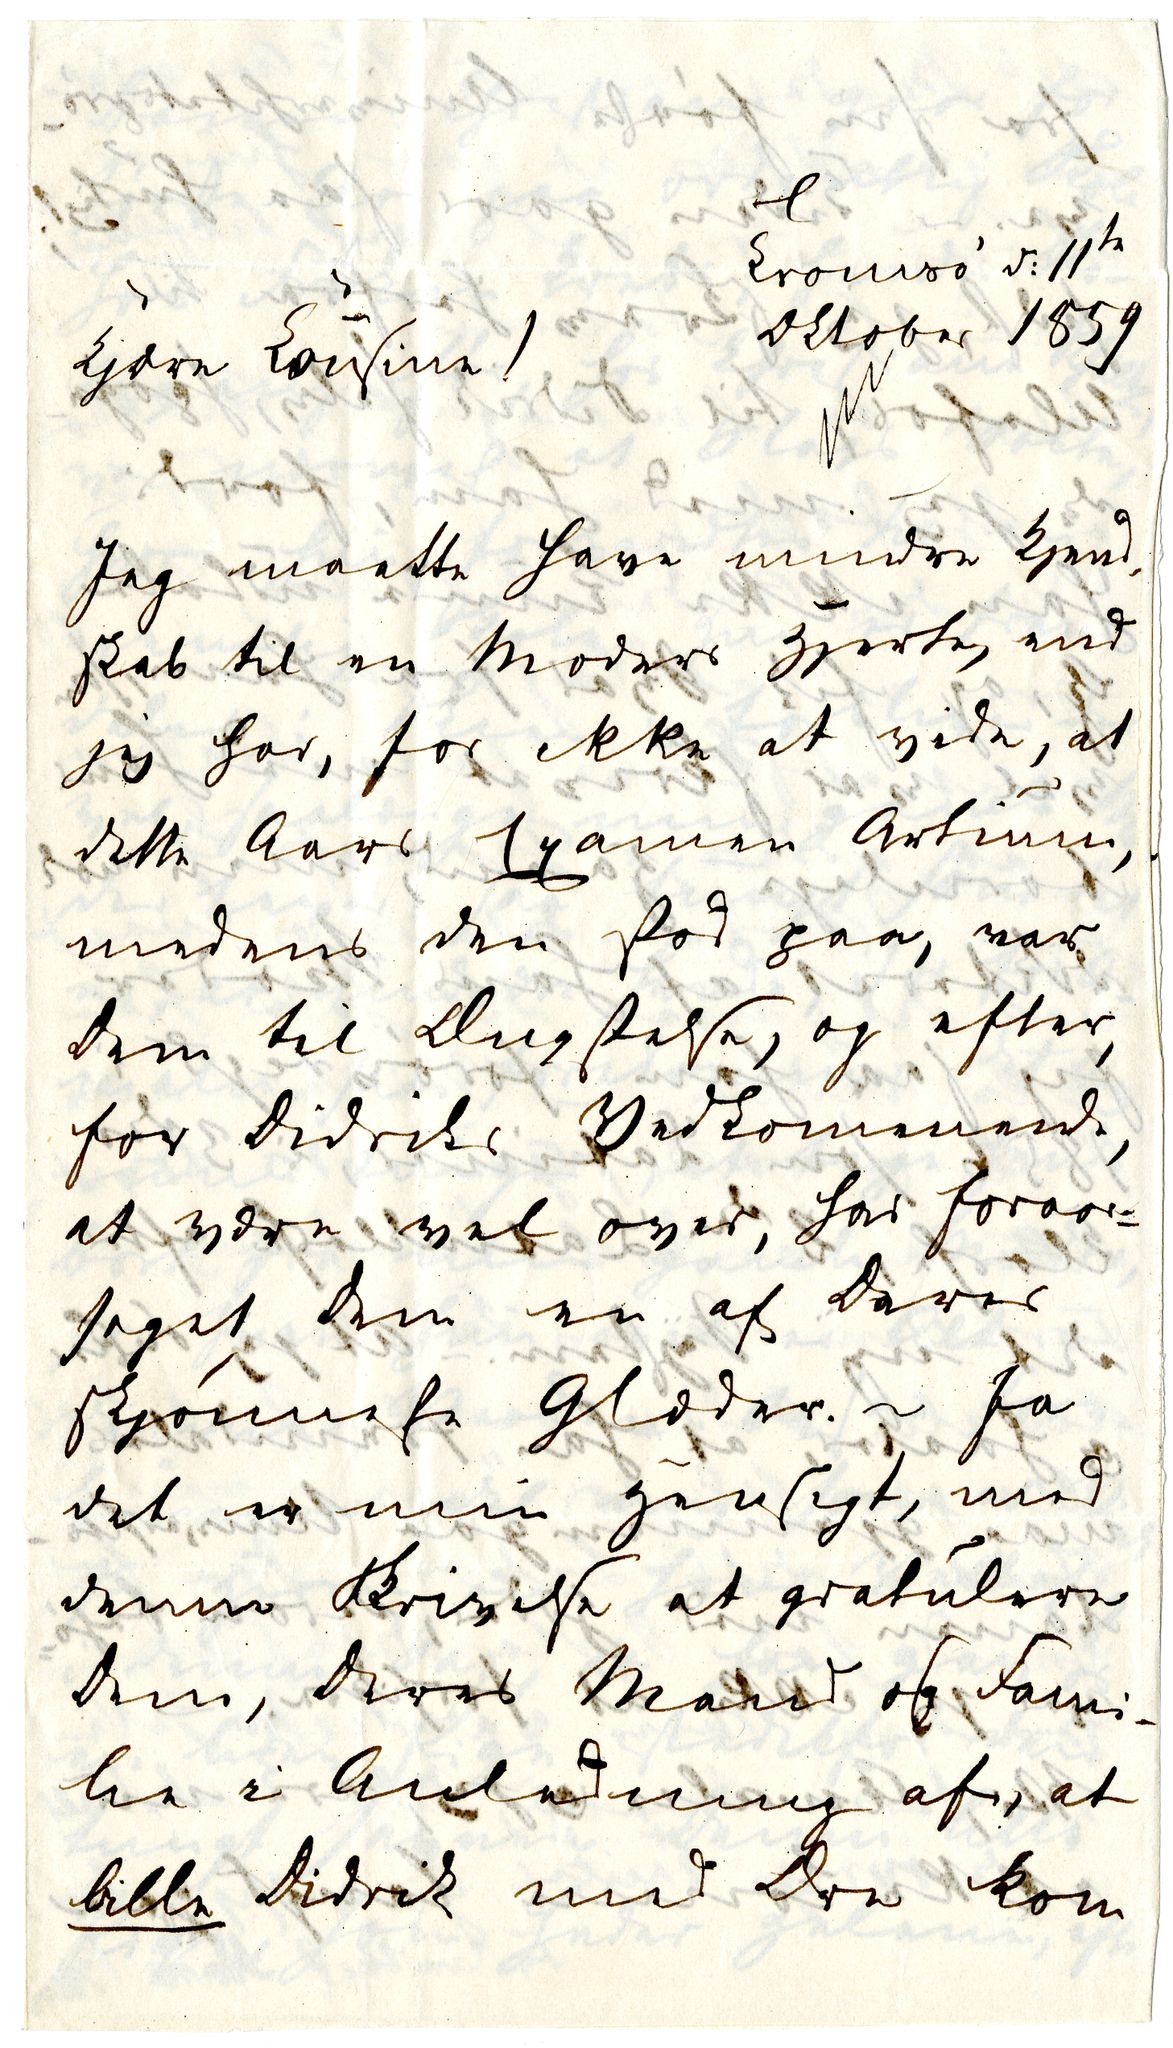 Tromsö d: 11te
Oktober 1859
Kjære Coúsine!
Jeg maatte have mindre Kjend-
skab til en Moders Hjerte, end
jeg har, for ikke at vide, at
dette Aars Examen Artiúm,
medens den stod paa, var
Dem til Ængstelse, og efter,
for Didriks Vedkomnende,
at være vel over, har foraar-
saget Dem en af Deres
skjönneste Glæder. ~ Ja
det er min Hensigt, med
denne Skrivelse at gratúlere
Dem, Deres Mand og Fami-
lie i Anledning af, at
lille Didrik med Ære kom